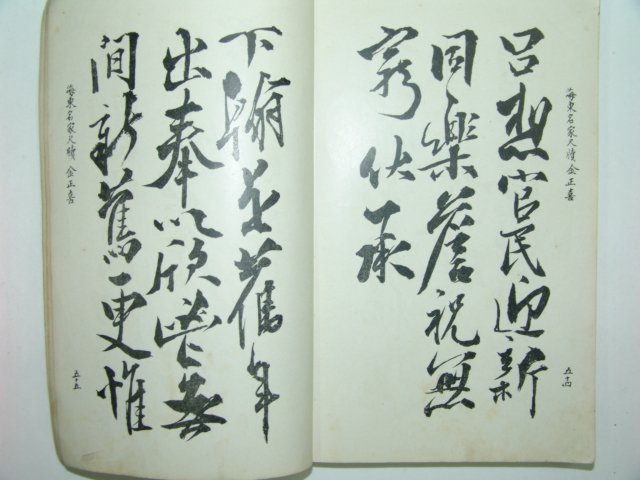 海東名家尺牘 金正喜
五十四
呂想官民迎新
同樂詹祝無
窮伏承
下翰是舊年
出奉以欣無
間新舊更惟
海東名家尺牘 金正喜
五十五